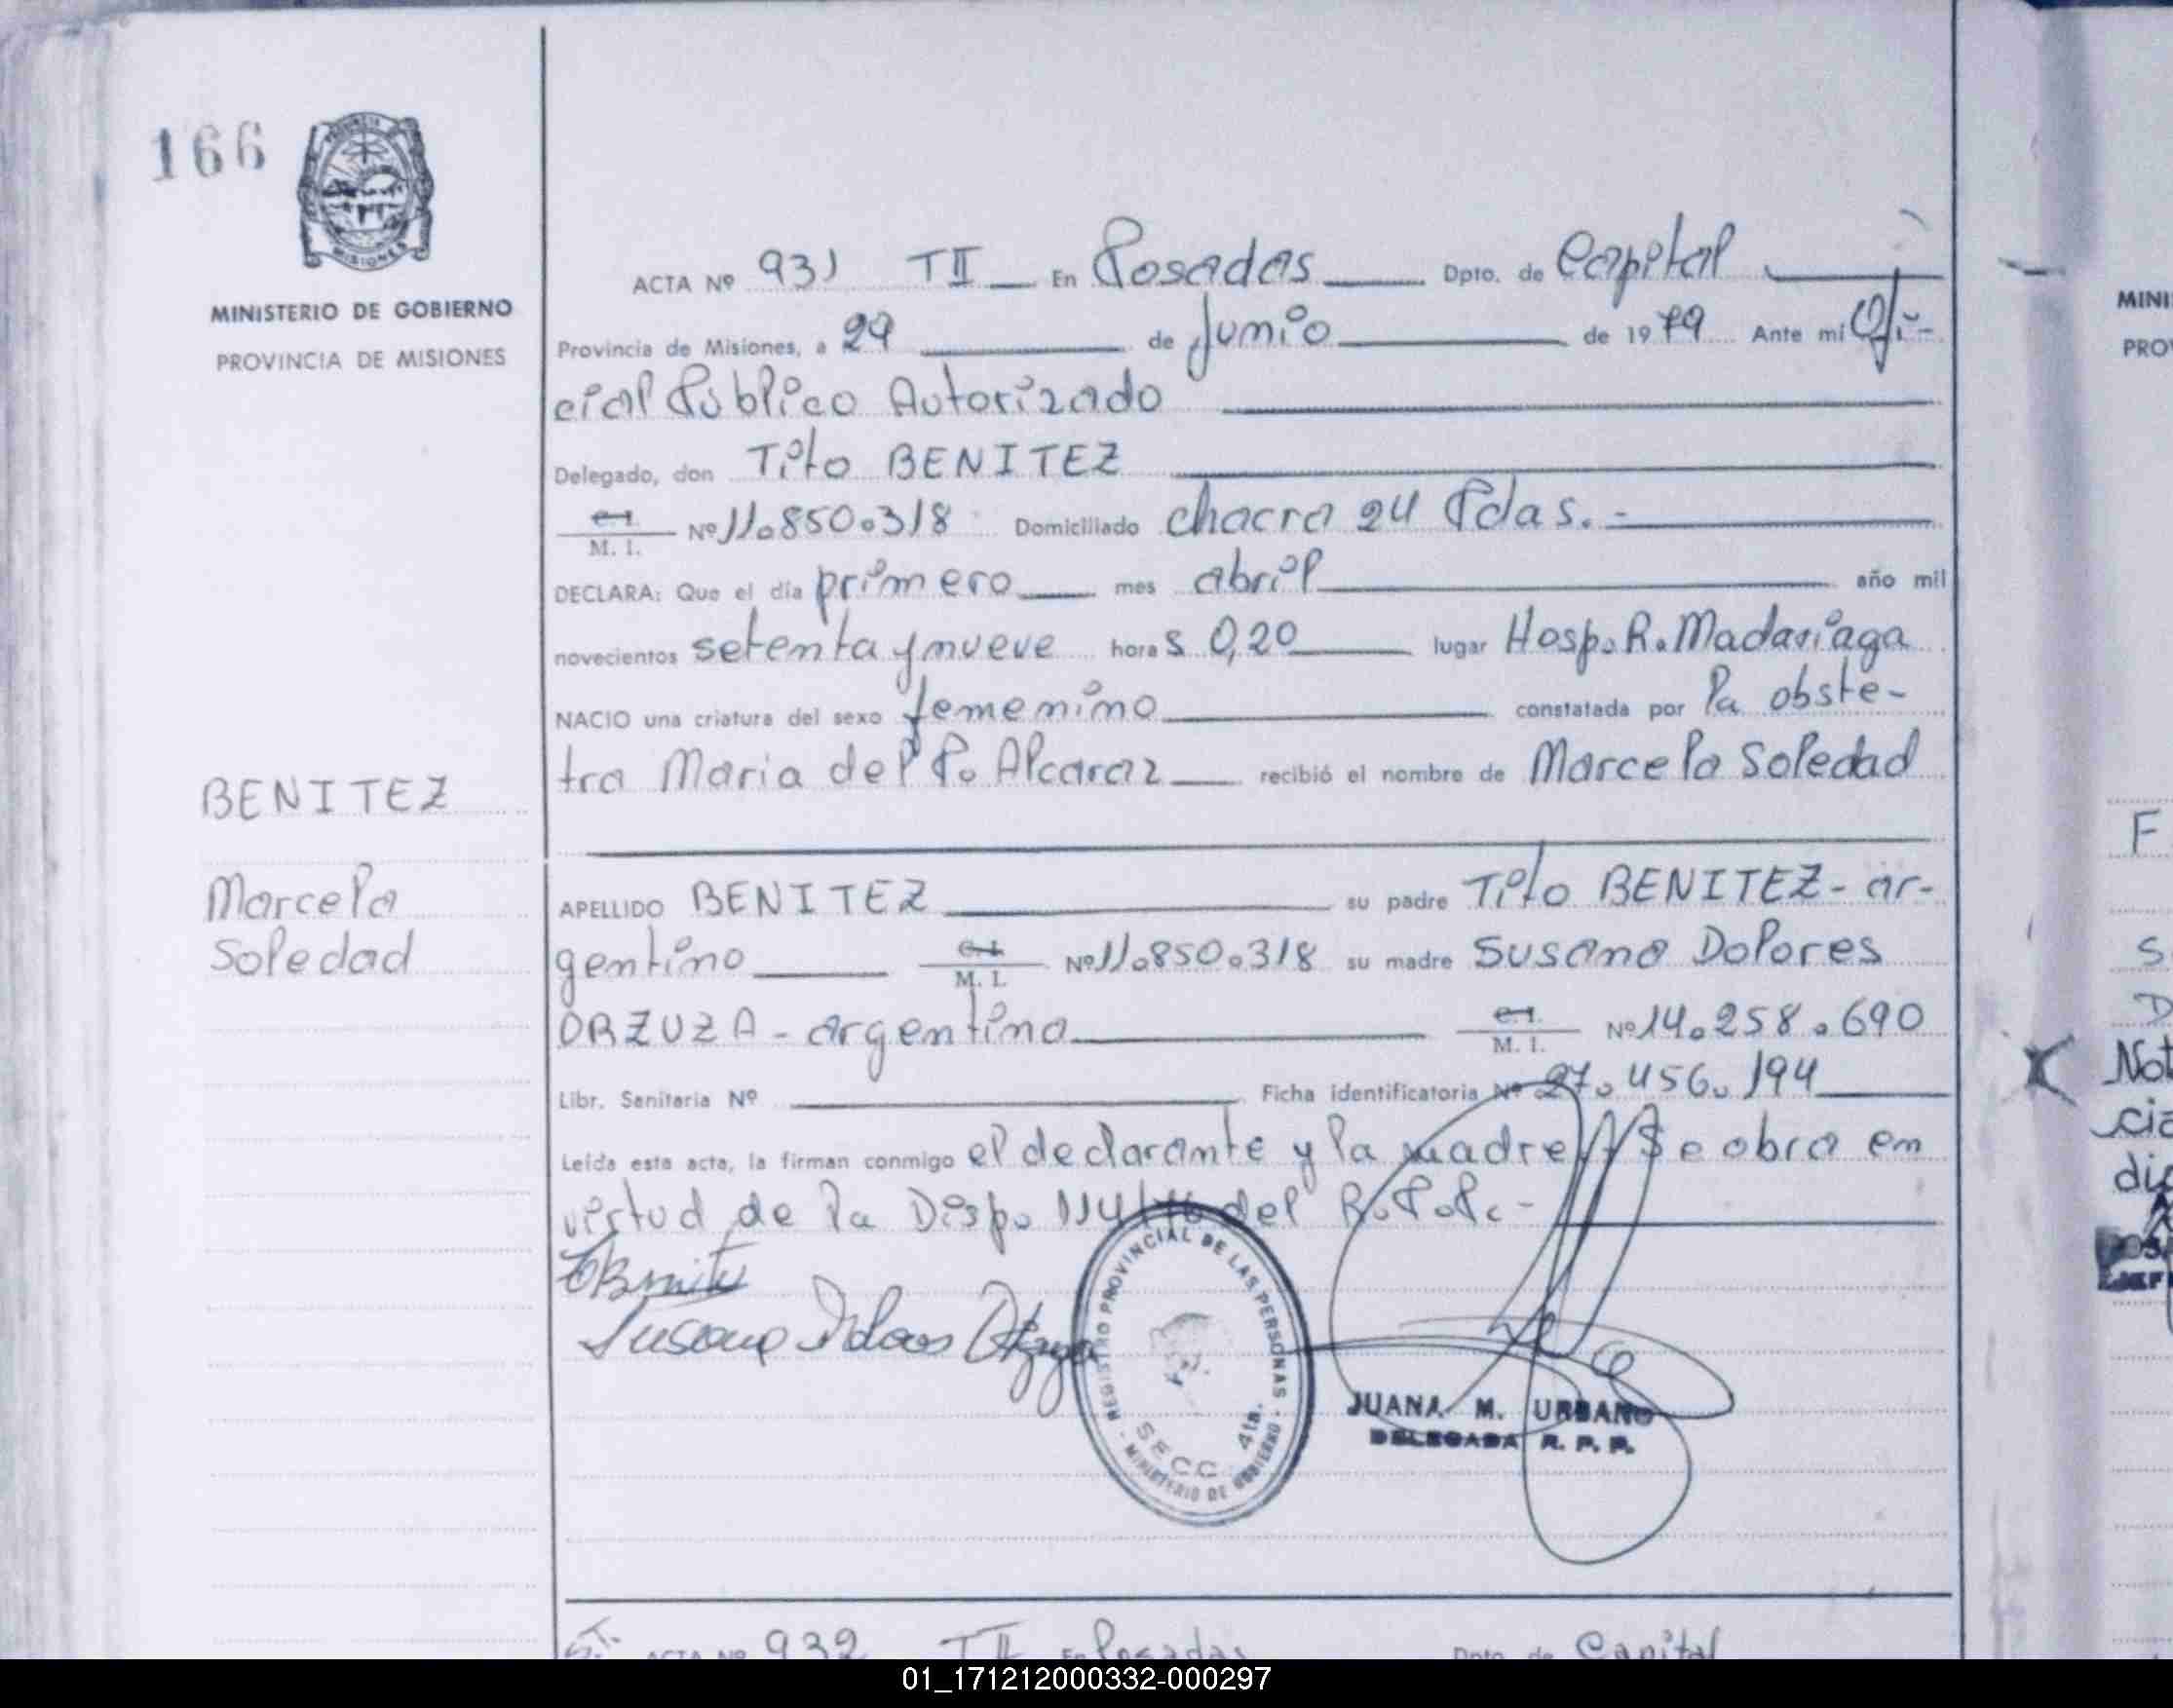 166
PROVINCIA DE
MISIONES
MINISTERIO DE GOBIERNO
PROVINCIA DE MISIONES
BENITEZ
Marcela
Soledad
ACTA Nº 931 TII En Posadas Dpto. de Capital
Provincia de Misiones, a 29 de Junio de 1979 Ante mí Ofi-
cial Público Autorizado
Delegado, don Tito BENITEZ
M. I. Nº 11.850.318 Domiciliado chacra 24 Pdas.-
DECLARA: Que el día primero mes abril año mil
novecientos setenta y nueve horas 0,20 lugar Hosp. R. Madariaga
NACIO una criatura del sexo femenino constatada por la obste-
tra Maria del P. Alcaraz recibió el nombre de Marcela Soledad
APELLIDO BENITEZ su padre Tito BENITEZ- ar-
gentino M. I. Nº 11.850.318 su madre Susana Dolores
ORZUZA - argentina M. I. Nº 14.258.690
Libr. Sanitaria Nº Ficha identificatoria Nº 27.456.194
Leída esta acta, la firman conmigo el declarante y la madre // Se obra en
virtud de la Disp. del R.P.P.-
TBenitez
Susana Dolores Orzuza
REGISTRO PROVINCIAL DE LAS PERSONAS
SECC. 4ta.
- MINISTERIO DE GOBIERNO -
JUANA M. URBANO
DELEGADA R. P. P.
ACTA Nº 932 TII En Posadas Dpto. de Capital
MINI
PROV
F
S
D
Not
cia
di
01_171212000332-000297